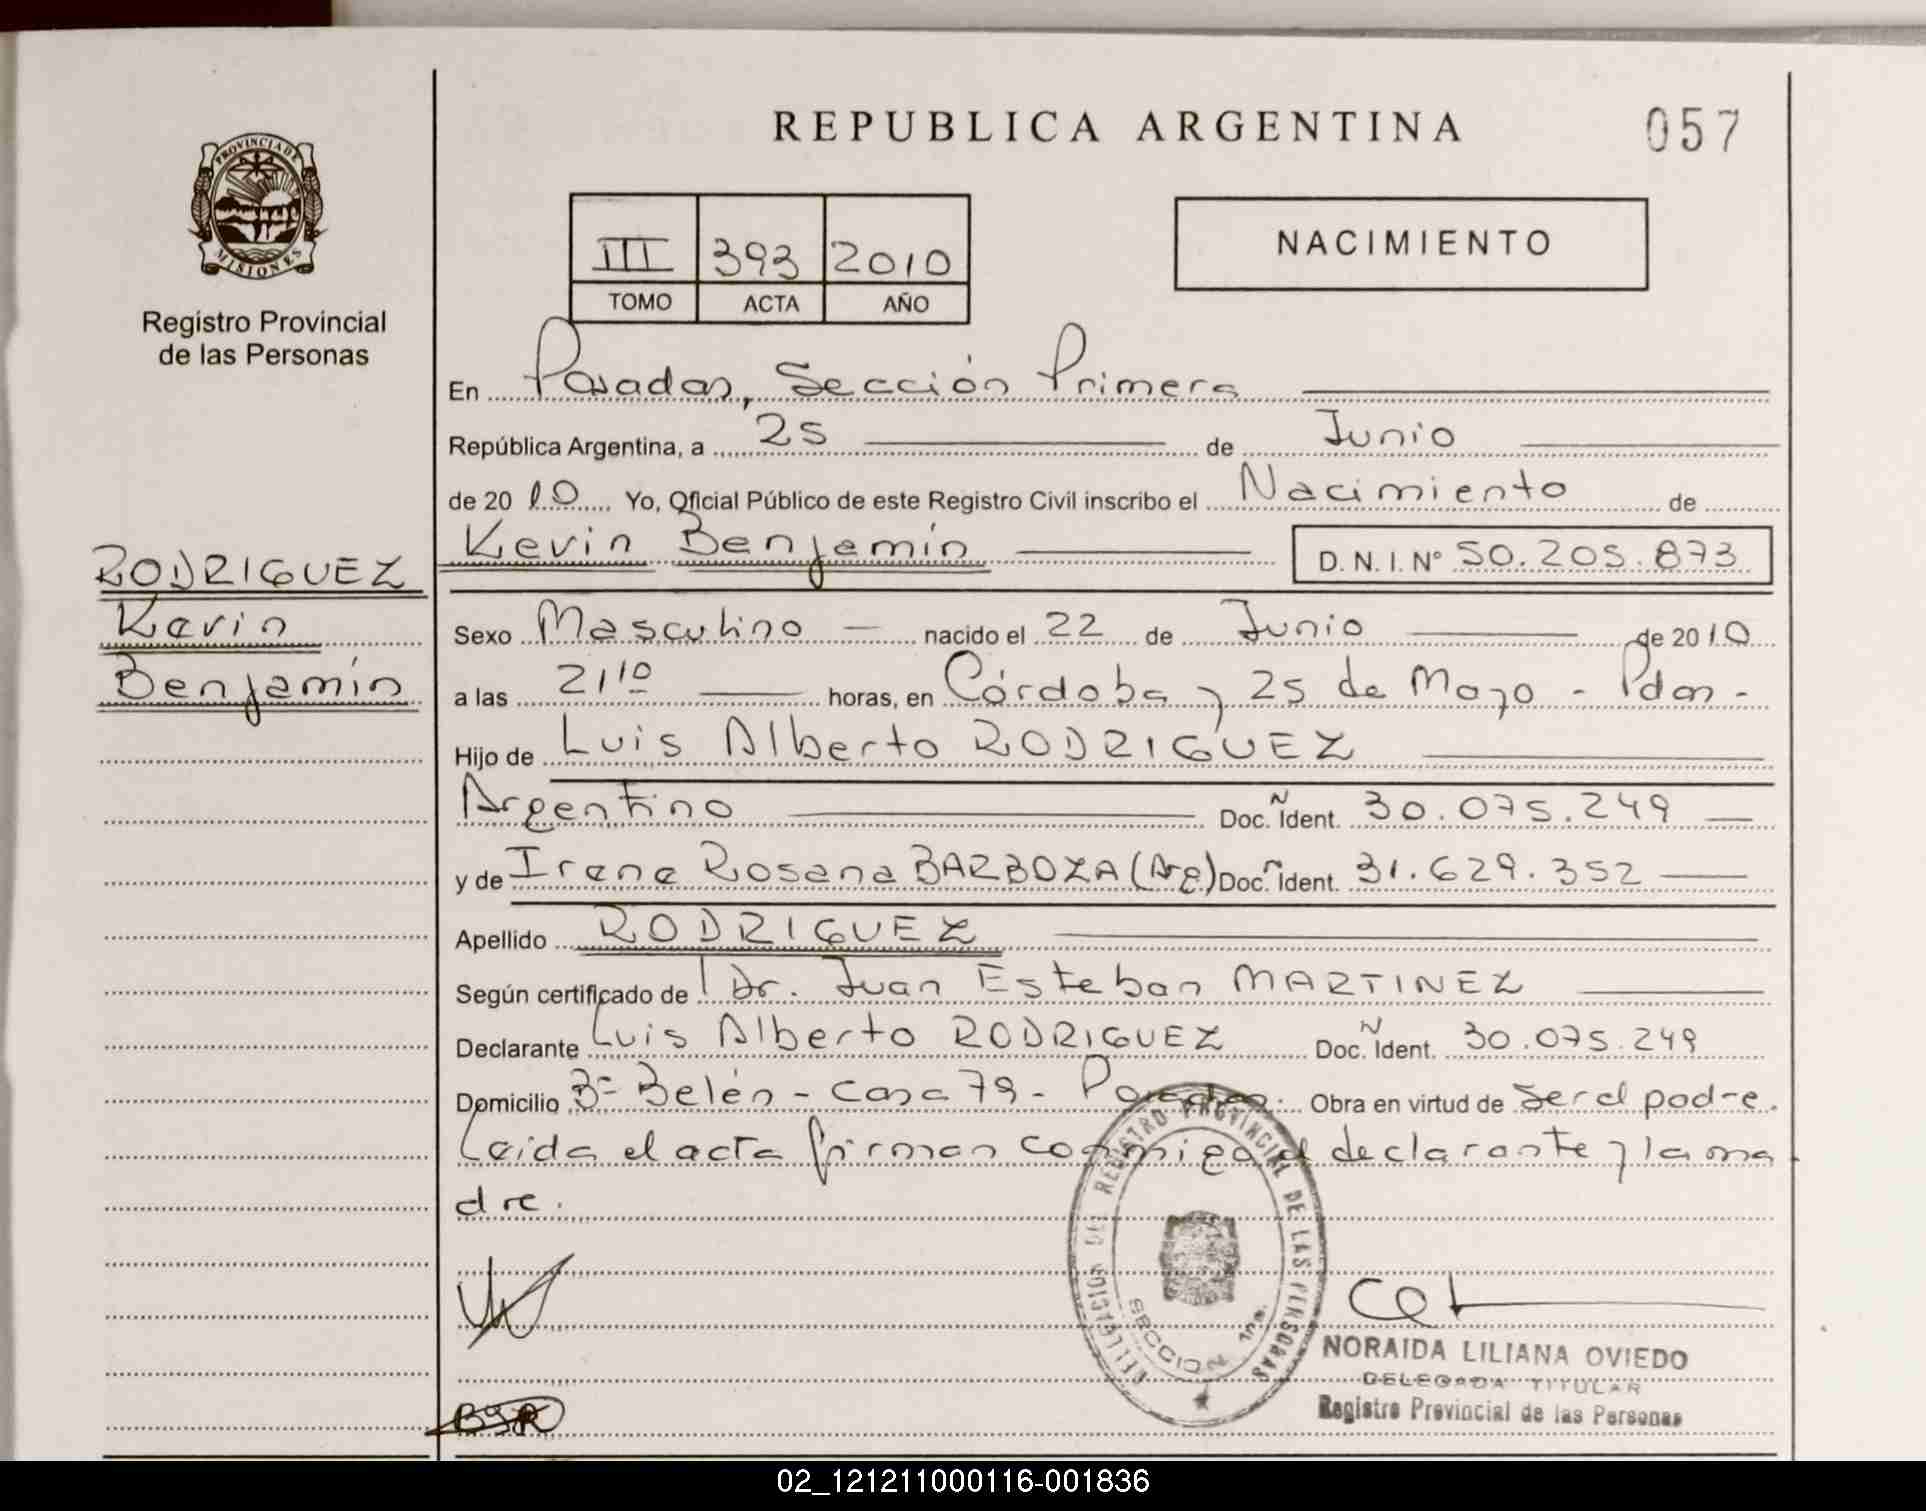 REPUBLICA ARGENTINA
057
PROVINCIA DE
MISIONES
Registro Provincial
de las Personas
NACIMIENTO
III 393 2010
TOMO ACTA AÑO
En Posadas, Sección Primera
República Argentina, a 25 de Junio
de 2010 Yo, Oficial Público de este Registro Civil inscribo el Nacimiento de
Kevin Benjamín D. N. I. Nº 50.205.873
RODRIGUEZ
Kevin
Benjamín
Sexo Masculino nacido el 22 de Junio de 2010
a las 21 10 horas, en Córdoba y 25 de Mayo - Pdas -
Hijo de Luis Alberto RODRIGUEZ
Argentino Doc. Ident. 30.075.249
y de Irene Rosana BARBOZA (Arg.) Doc. Ident. 31.629.352
Apellido RODRIGUEZ
Según certificado de Dr. Juan Esteban MARTINEZ
Declarante Luis Alberto RODRIGUEZ Doc. Ident. 30.075.249
Domicilio Bº Belén - casa 79 - Posadas. Obra en virtud de ser el padre.
Leída el acta firman conmigo el declarante y la ma
dre.
DELEGACION DEL REGISTRO PROVINCIAL DE LAS PERSONAS
SECCION 1ra.
NORAIDA LILIANA OVIEDO
DELEGADA TITULAR
Registro Provincial de las Personas
02_121211000116-001836